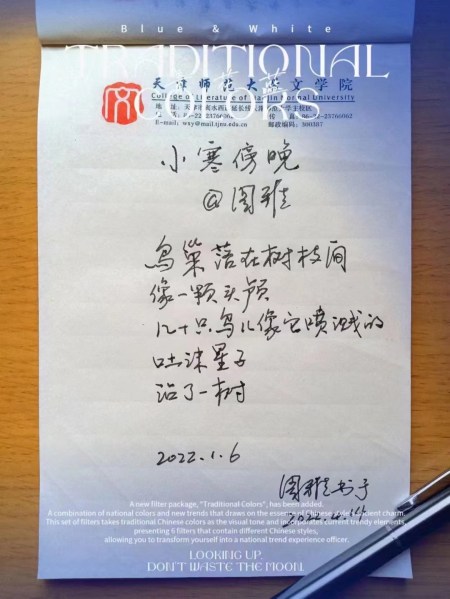 Blue & White
TRADITIONAL
COLORS
天津师范大学文学院
College of Literature of Tianjin Normal University
E-mail: wxy@mail.tjnu.edu.cn
邮政编码: 300387
小寒傍晚
@图雅
鸟巢落在树枝间
像一颗头颅
几十只鸟儿像它喷溅的
吐沫星子
沾了一树
2022.1.6
图雅书于
A new filter package, "Traditional Colors", has been added.
A combination of national colors and new trends that draws on the essence of Chinese color's ancient charm.
This set of filters takes traditional Chinese colors as the visual tone and incorporates current trendy elements,
presenting 6 filters that contain different Chinese styles,
allowing you to transform yourself into a national trend experience officer.
LOOKING UP,
DON'T WASTE THE MOON.